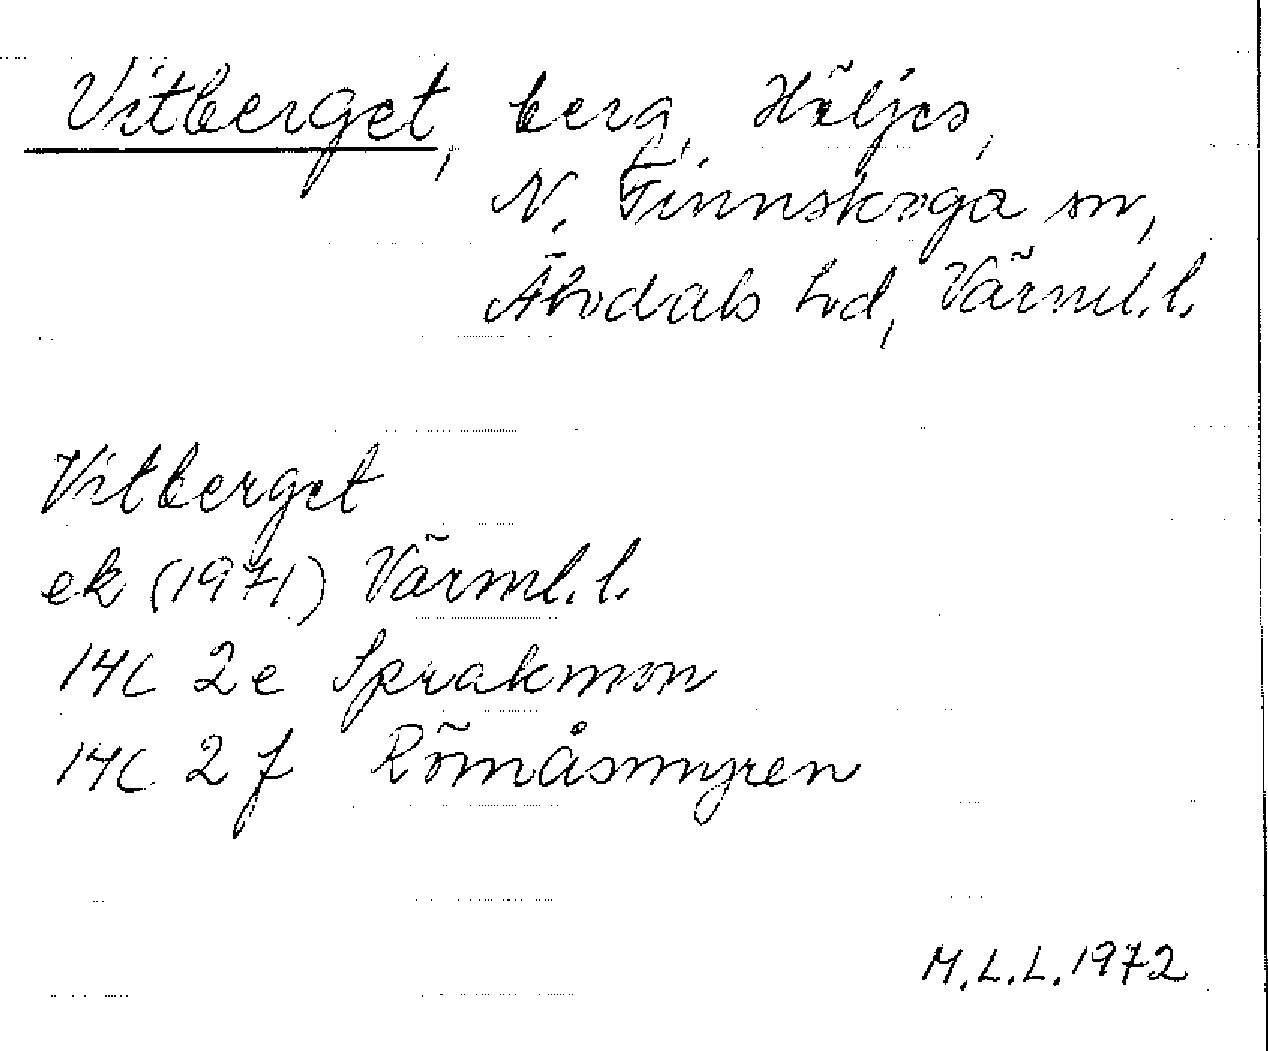 Vitberget, berg, Höljes,
N. Finnskoga sn,
Älvdals hd, Värml. l.
Vitberget
ek (1971) Värml. l.
14C 2e Sprakmon
14C 2f Römåsmyren
M.L.L. 1972